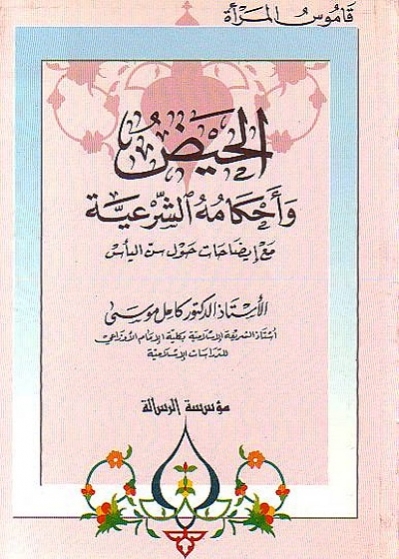 قاموس المرأة
الحيض
وأحكامه الشرعية
مع إيضاحات حول سن اليأس
الأستاذ الدكتور كامل موسى
أستاذ الشريعة الإسلامية بكلية الإمام الأوزاعي
للدراسات الإسلامية
مؤسسة الرسالة